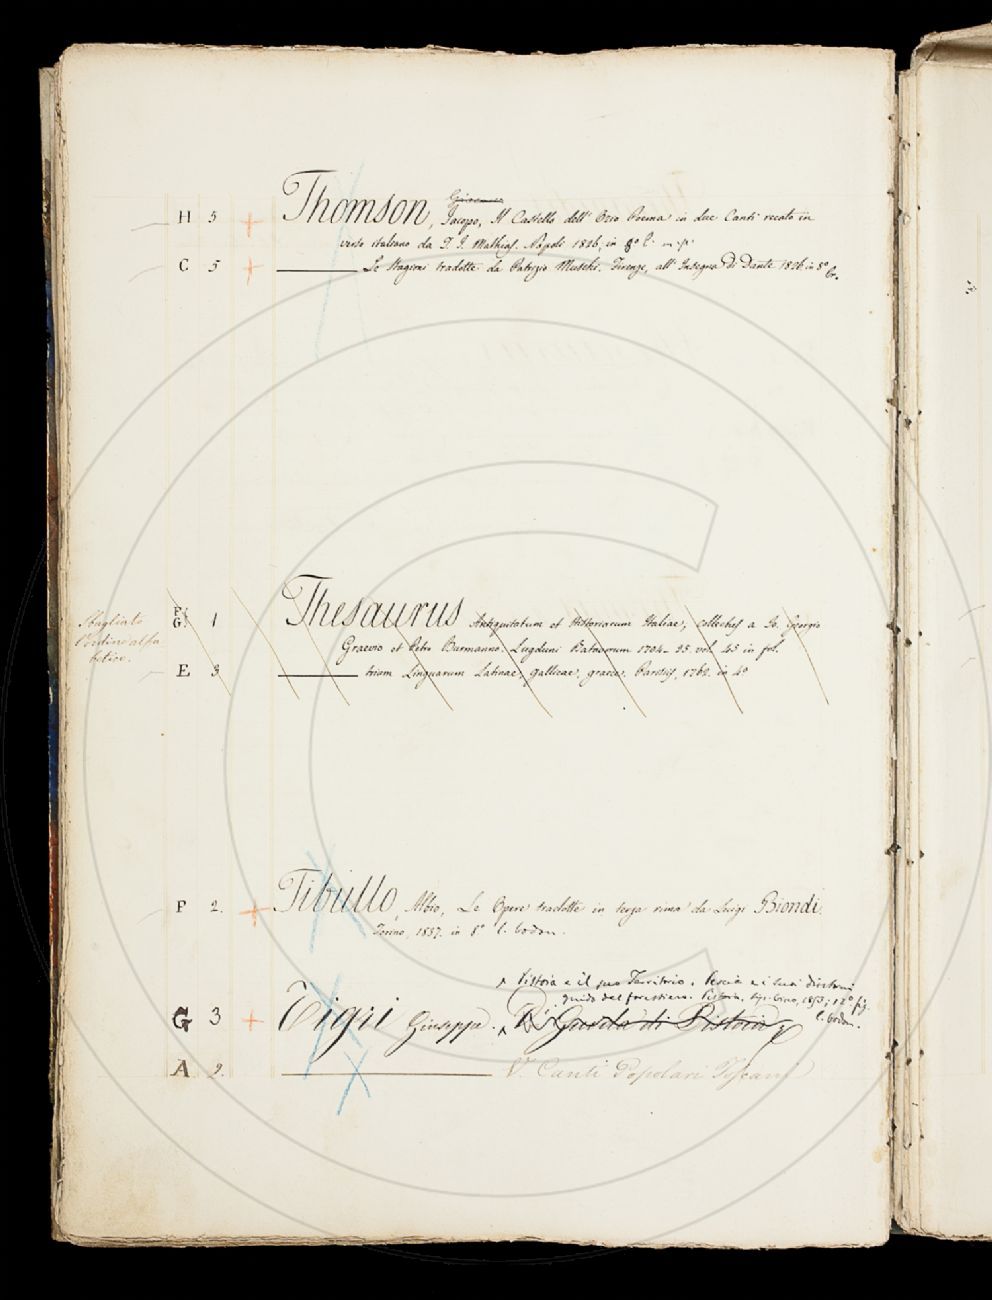 H 5 + Thomson, Giacomo
Jacopo, Il Castello dell' Ozio Poema in due Canti recato in
verso italiano da T. J. Mathias. Napoli 1826, in 8º
C 5 + Le Stagioni tradotte da Patrizio Muschi. Firenze, all' Insegna di Dante 1826 in 8º br.
Sbagliato
l'ordine alfa
betico.
F/G 1 Thesaurus Antiquitatum et Historiarum Italiae, collectus a Jo. Georgio
Graevio et Petro Burmanno. Lugduni Batavorum 1704-25 vol. 45 in fol.
E 3 trium Linguarum Latinae, gallicae, graecae. Parisiis, 1762. in 4º
F 2. + Tibullo, Albio, Le Opere tradotte in terza rima da Luigi Biondi.
Torino, 1837. in 8º l. bodon.
Pistoia e il suo Territorio. Pescia e i suoi dintorni
guida del forestiero. Pistoia, Tip. Cino, 1853; 12º fig.
l. bodon.
G 3 + Tigri Giuseppe. Guida di Pistoia
A 2. V. Canti Popolari Toscani